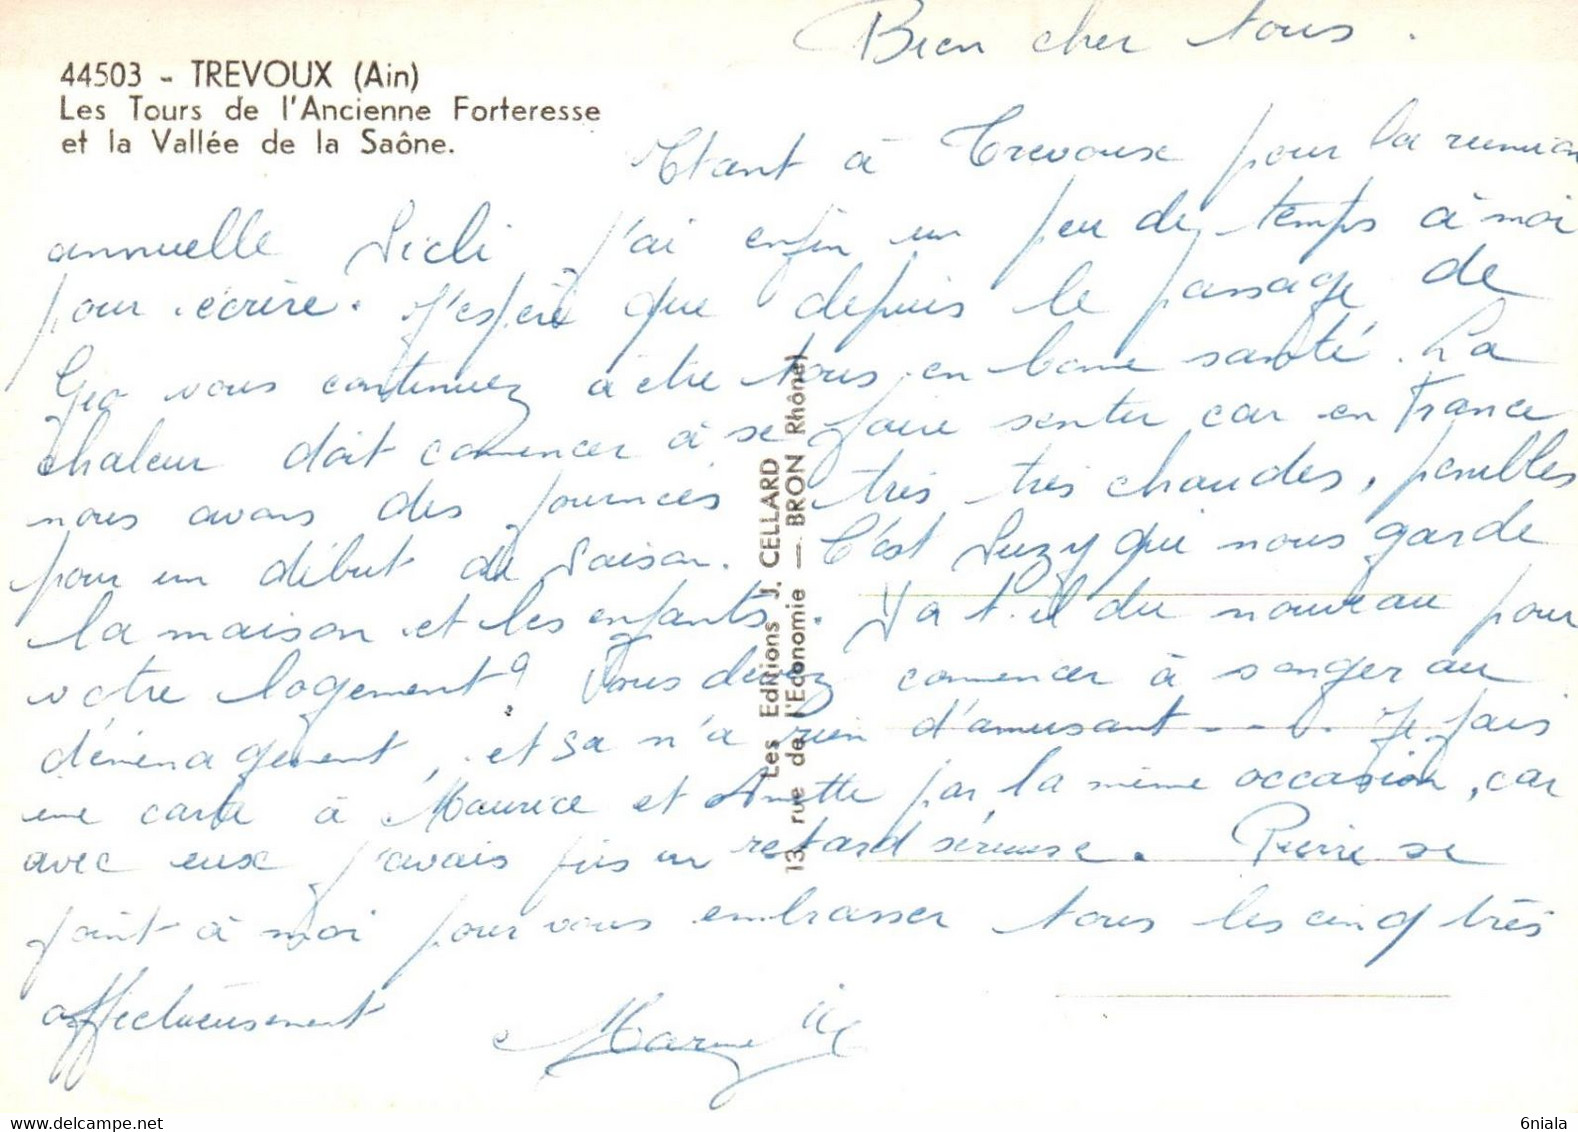 Bien cher tous.
44503 - TREVOUX (Ain)
Les Tours de l'Ancienne Forteresse
et la Vallée de la Saône.
Etant à Trevoux pour la reunion
annuelle Sicli j'ai enfin un peu de temps à moi
pour écrire. J'espère que depuis le passage de
Geo vous continuez à être tous en bonne santé. La
chaleur doit comencer à se faire sentir car en France
nous avons des journées très très chaudes, penibles
pour un début de saison. C'est Suzy qui nous garde
la maison et les enfants. Y a t-il du nouveau pour
votre logement? Vous devez comencer à songer au
déménagement, et sa n'a rien d'amusant - - . Je fais
une carte à Maurice et Anette par la même occasion, car
avec eux j'avais pris un retard sérieuse. Pierre se
joint à moi pour vous embrasser tous les cinq très
affectueusement
Les Editions J. CELLARD
13, rue de l'Economie — BRON (Rhône)
6niala